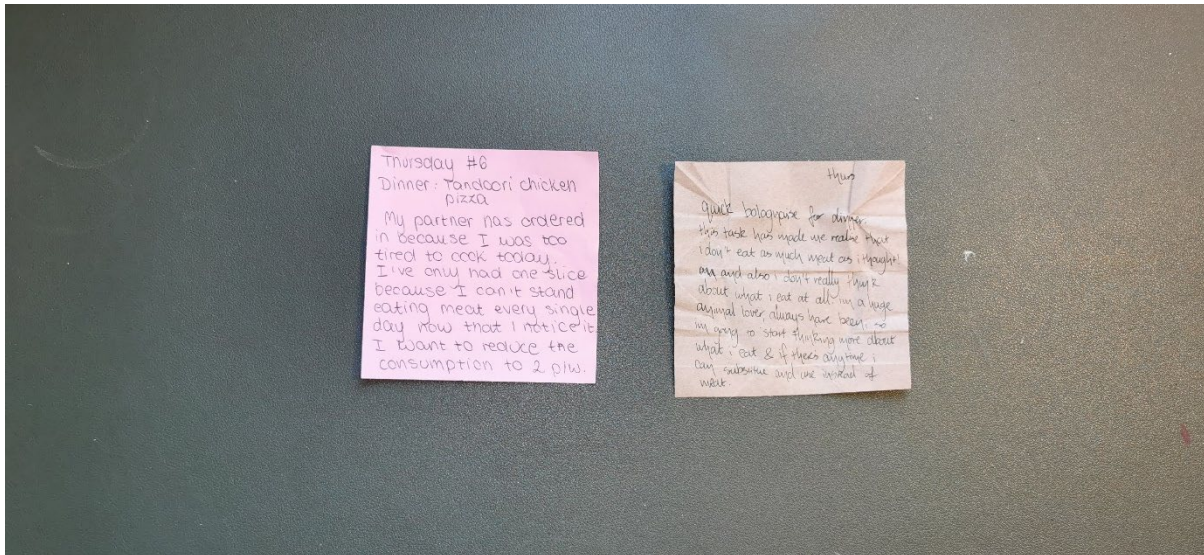 Thursday #6
Dinner: Tandoori chicken
pizza
My partner has ordered
in because I was too
tired to cook today.
I've only had one slice
because I can't stand
eating meat every single
day now that I notice it
I want to reduce the
consumption to 2 p/w.
thurs
quick bolognaise for dinner.
this task has made me realise that
i don't eat as much meat as i thought!
and also i don't really think
about what i eat at all. im a huge
animal lover, always have been. so
im going to start thinking more about
what i eat & if theres anything i
can substitue and use instead of
meat.